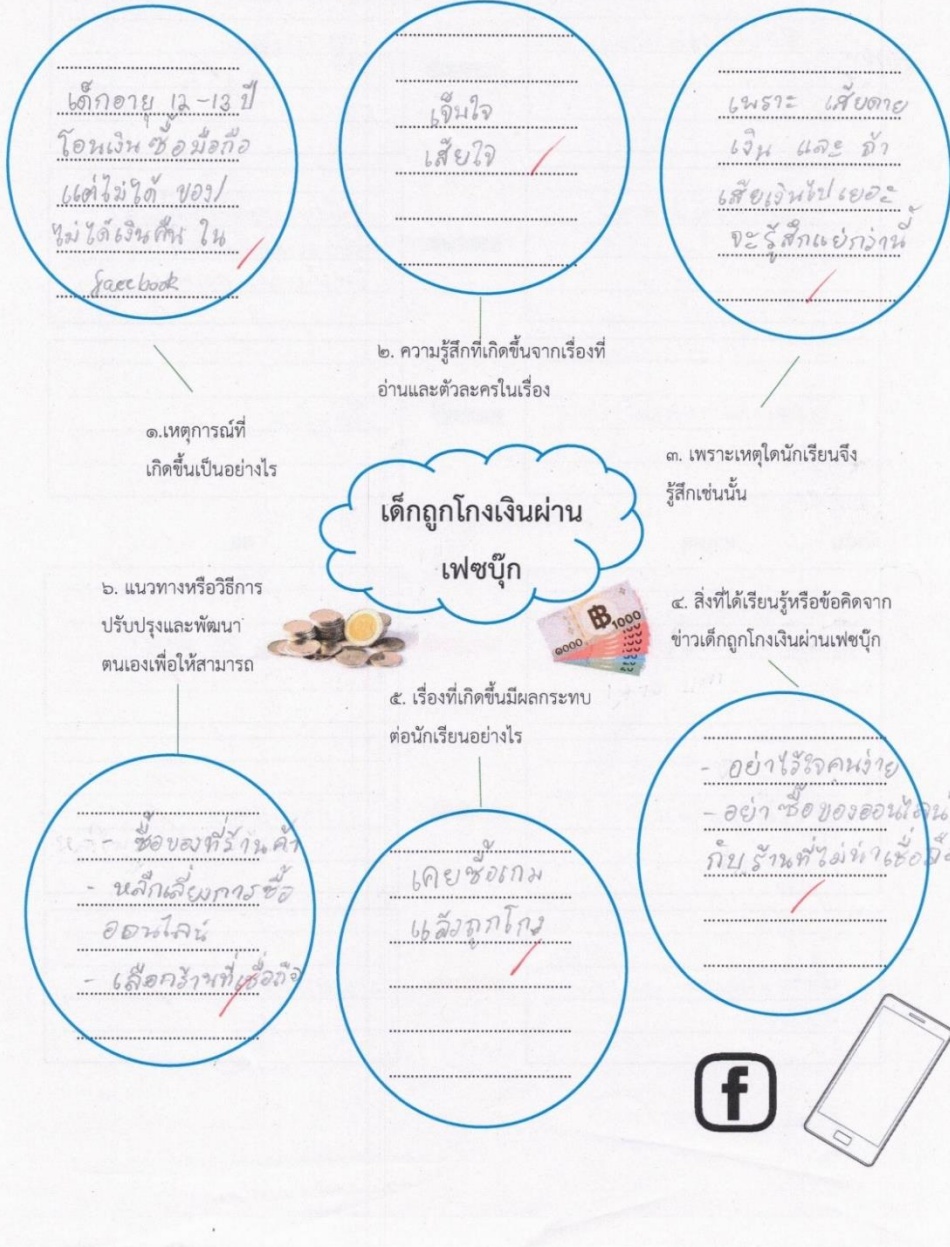 เด็กอายุ 12-13 ปี
โอนเงินซื้อมือถือ
แต่ไม่ได้ ของ/
ไม่ได้เงินคืน ใน
facebook
เจ็บใจ
เสียใจ
เพราะ เสียดาย
เงิน และ ถ้า
เสียเงินไปเยอะ
จะรู้สึกแย่กว่านี้
๑.เหตุการณ์ที่
เกิดขึ้นเป็นอย่างไร
๒. ความรู้สึกที่เกิดขึ้นจากเรื่องที่
อ่านและตัวละครในเรื่อง
๓. เพราะเหตุใดนักเรียนจึง
รู้สึกเช่นนั้น
เด็กถูกโกงเงินผ่าน
เฟซบุ๊ก
๔. สิ่งที่ได้เรียนรู้หรือข้อคิดจาก
ข่าวเด็กถูกโกงเงินผ่านเฟซบุ๊ก
๑๐๐๐ ฿ 1000
๕. เรื่องที่เกิดขึ้นมีผลกระทบ
ต่อนักเรียนอย่างไร
๖. แนวทางหรือวิธีการ
ปรับปรุงและพัฒนา
ตนเองเพื่อให้สามารถ
- อย่าไว้ใจคนง่าย
- อย่าซื้อของออนไลน์
กับร้านที่ไม่น่าเชื่อถือ
เคยซื้อเกม
แล้วถูกโกง
- ซื้อของที่ร้านค้า
- หลีกเลี่ยงการซื้อ
ออนไลน์
- เลือกร้านที่เชื่อถือ
f